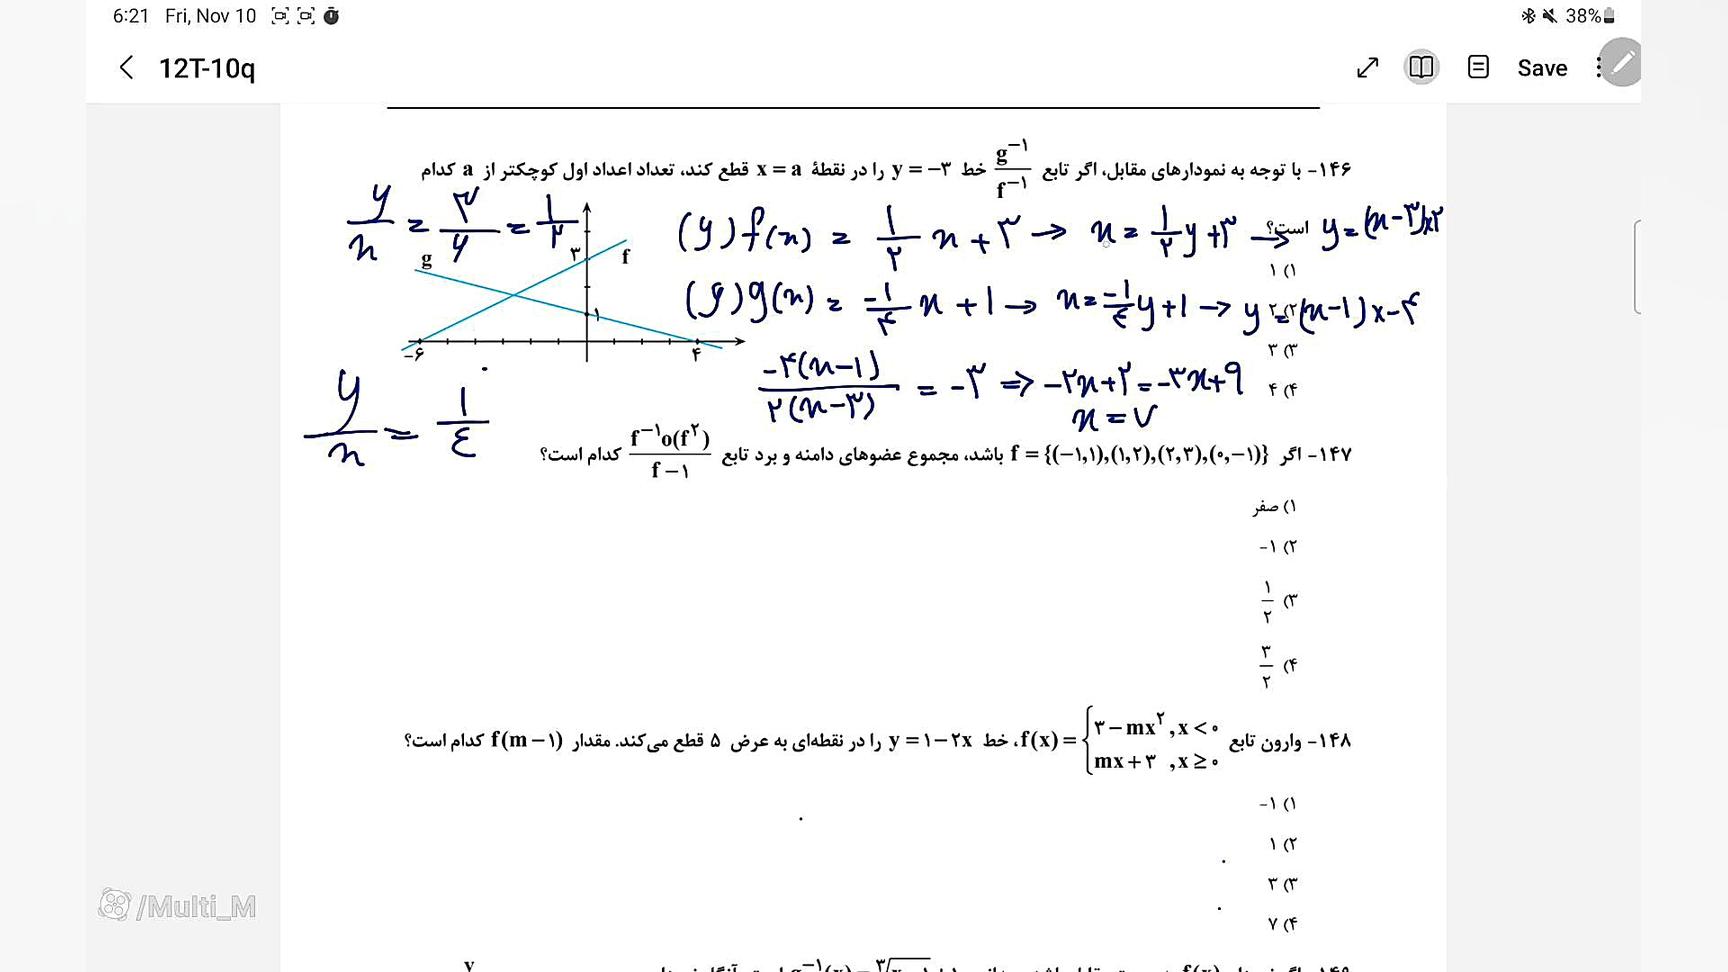 6:21 Fri, Nov 10
38%
12T-10q
Save
۱۴۶- با توجه به نمودارهای مقابل، اگر تابع g⁻¹/f⁻¹ خط y = -۳ را در نقطهٔ x = a قطع کند، تعداد اعداد اول کوچکتر از a کدام
است؟
y/x = ۳/۶ = ۱/۲
(y) f(x) = ۱/۲ x + ۳ → x = ۱/۲ y + ۳ → y = (x-۳)×۲
g
۳
f
۱) ۱
(y) g(x) = -۱/۴ x + 1 → x = -۱/۴ y + 1 → y = (x-1)×-۴
۲) ۲
۱
-۶
۴
۳) ۳
-۴(x-1)/۲(x-۳) = -۳ ⇒ -۲x+۲ = -۳x+۹
۴) ۴
x = ۷
y/x = ۱/۴
۱۴۷- اگر f = {(-۱,۱),(۱,۲),(۲,۳),(۰,-۱)} باشد، مجموع عضوهای دامنه و برد تابع f⁻¹o(f²)/f-۱ کدام است؟
۱) صفر
۲) -۱
۳) ۱/۲
۴) ۳/۲
۱۴۸- وارون تابع f(x) = {۳-mx², x<۰
mx+۳ , x≥۰
، خط y = ۱-۲x را در نقطه‌ای به عرض ۵ قطع می‌کند. مقدار f(m-۱) کدام است؟
۱) -۱
۲) ۱
۳) ۳
۴) ۷
/Multi_M
y